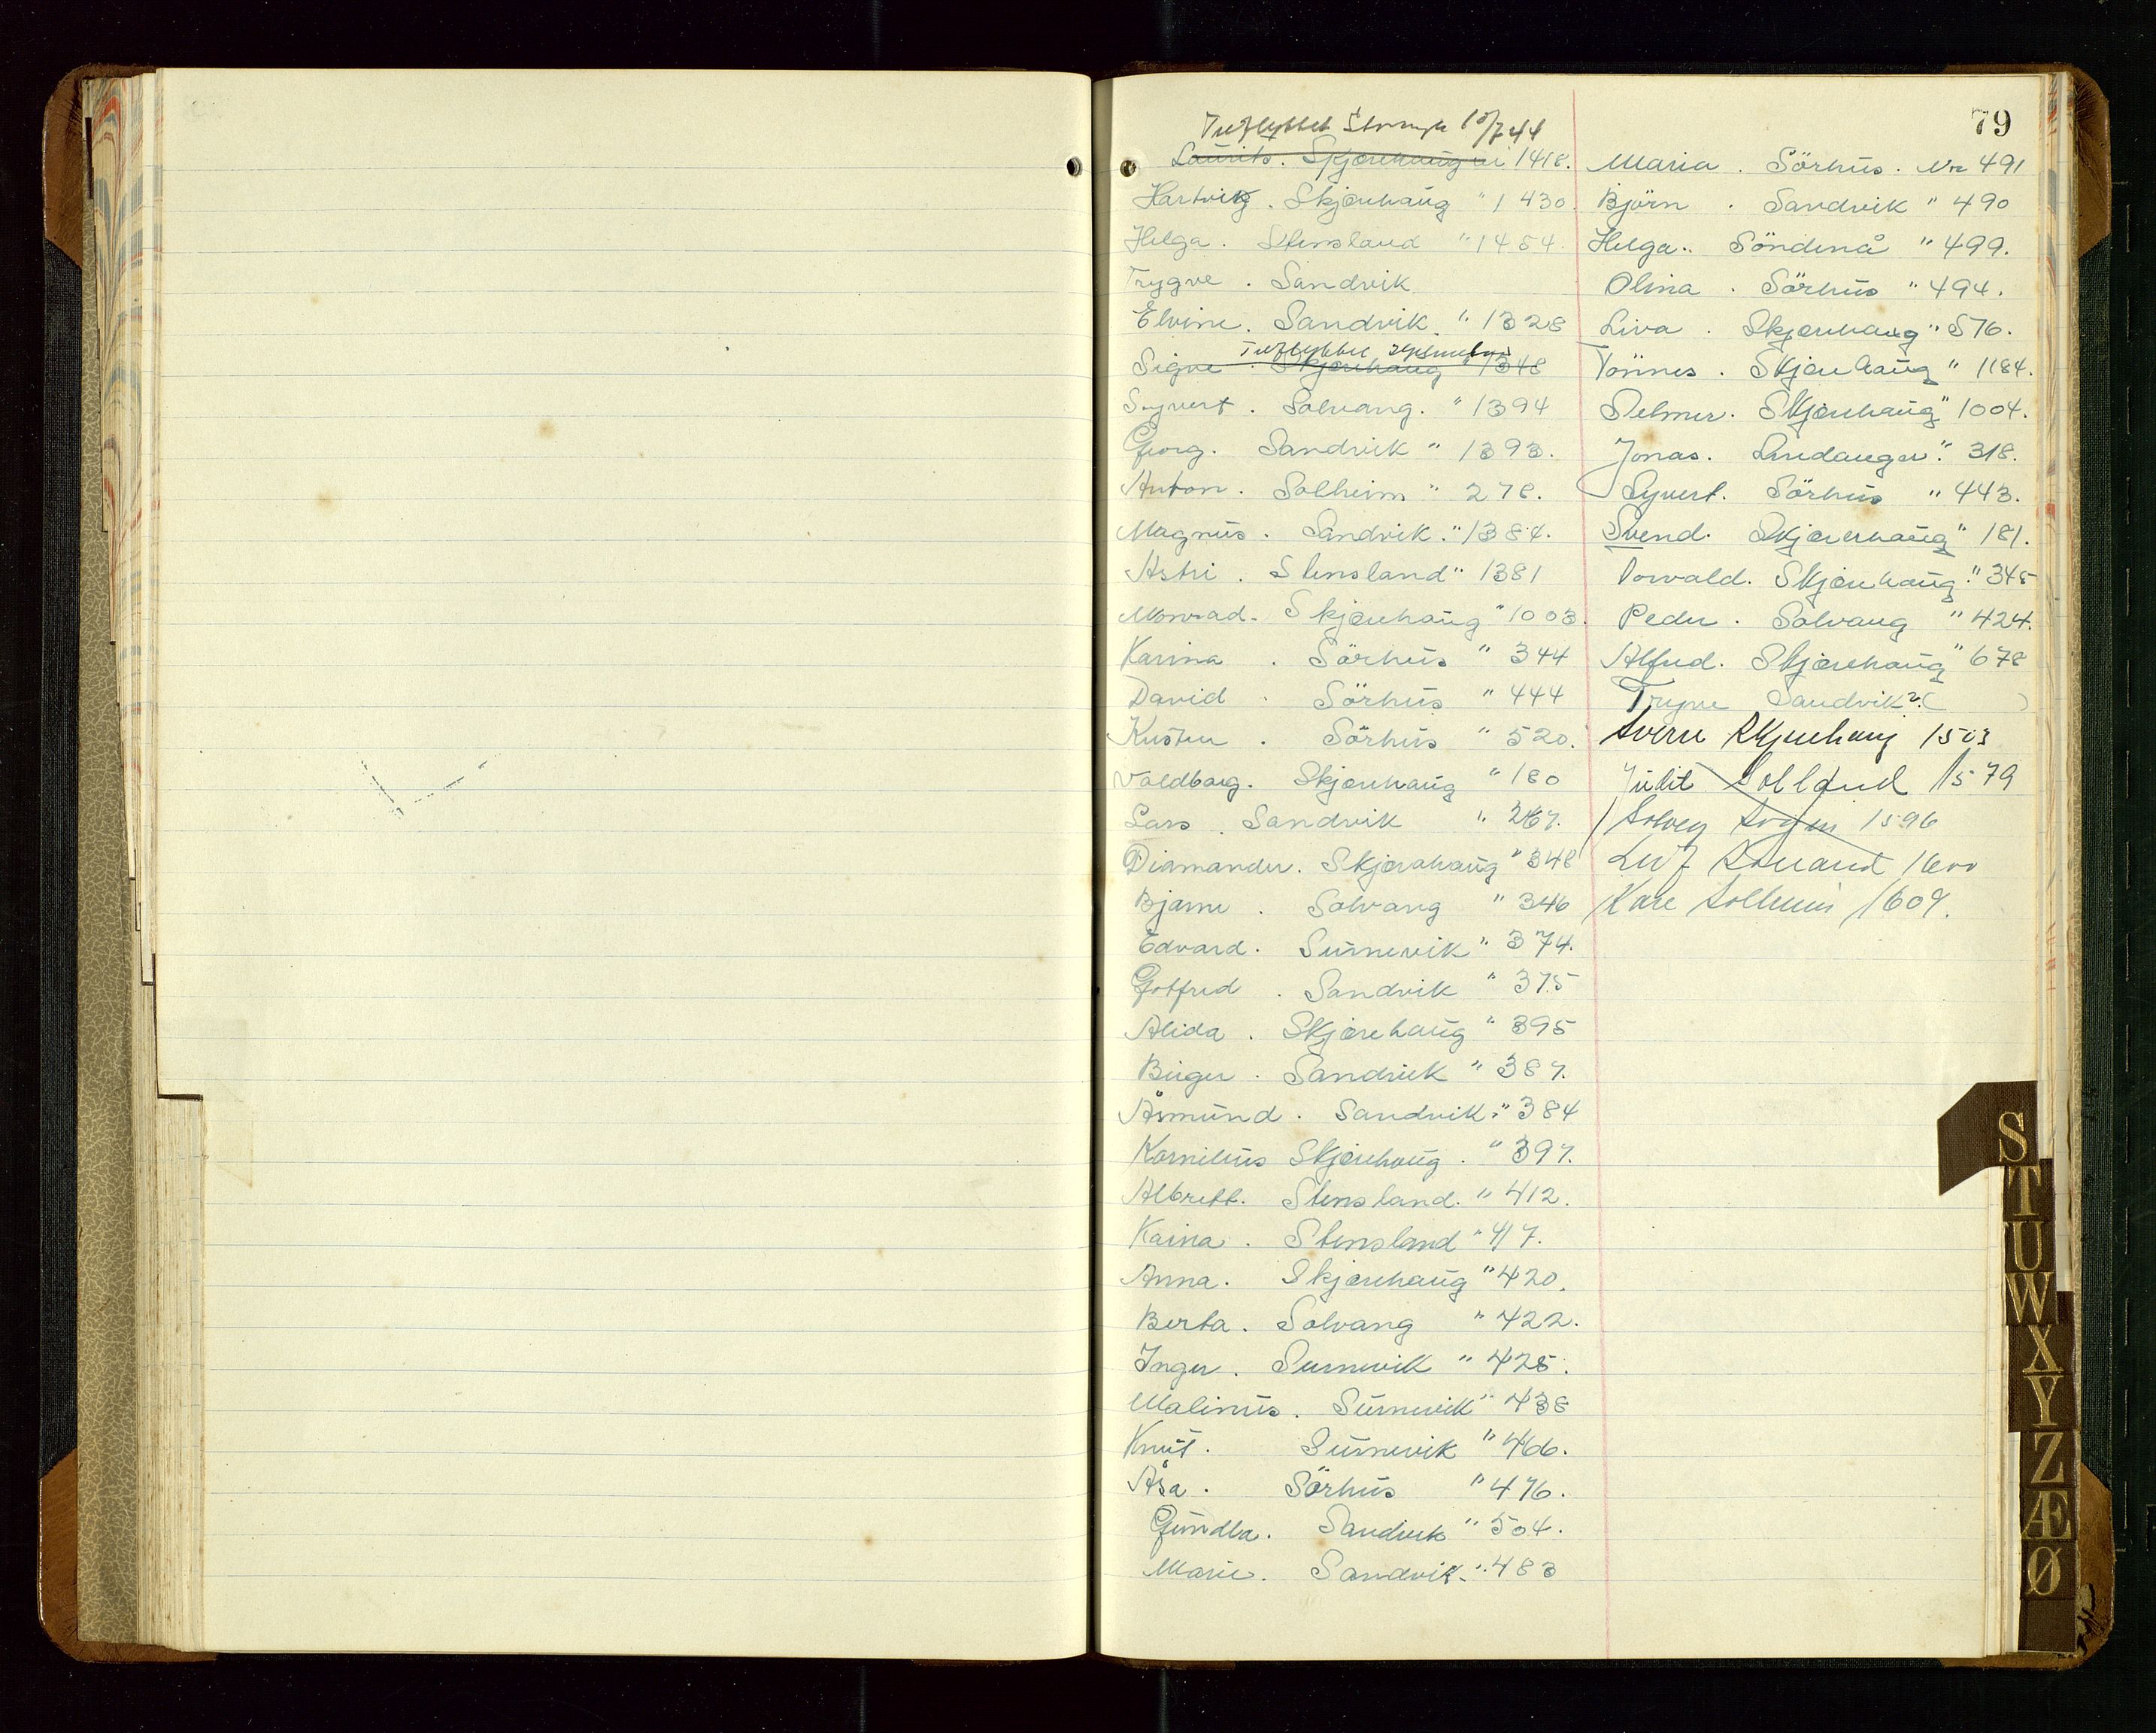 79
Utflyttet 10/7 44
Laurits. Skjærehaug nr 1418.
Hartvig. Skjærehaug " 1430.
Helga. Stensland " 1454.
Trygve. Sandvik
Elvine. Sandvik. " 1328
Utflyttet
Signe. Skjærehaug " 1348
Syvert. Solvang. " 1394
Georg. Sandvik " 1393.
Anton. Solheim " 278.
Magnus. Sandvik. " 1384.
Astri. Stensland " 1381
Monrad. Skjærehaug " 1003.
Karina. Sörhus " 344
David. Sörhus " 444
Kristen. Sörhus " 520.
Valdborg. Skjærehaug " 180
Lars. Sandvik " 267.
Diamander. Skjærehaug " 348
Bjarne. Solvang " 346
Edvard. Sunnevik " 374.
Gotfred. Sandvik " 375
Alida. Skjærehaug " 395
Birger. Sandvik " 387.
Åsmund. Sandvik. " 384
Kornelius Skjærehaug. " 397.
Albrett. Stensland. " 412.
Kaina. Stensland " 417.
Anna. Skjærehaug " 420.
Berta. Solvang " 422.
Inger. Sunnevik " 425.
Malinus. Sunnevik " 438
Knut. Sunnevik " 466.
Åsa. Sörhus " 476.
Gundla. Sandvik " 504.
Marie. Sandvik. " 483
Maria. Sörhus. Nr 491
Björn. Sandvik " 490
Helga.. Söndenå " 499.
Olina. Sörhus " 494.
Liva. Skjærehaug " 576.
Tönnes. Skjærehaug " 1184.
Selmer. Skjærehaug " 1004.
Jonas. " 318.
Syvert. Sörhus " 443.
Svend. Skjærerhaug " 181.
Torvald. Skjærehaug. " 345
Peder. Solvang " 424.
Alfred. Skjærehaug " 678
Trygve Sandvik? ( )
Sverre Skjærehaug 1503
Judit 1579
Solveig 1596
Leif 1600
Kåre Solheim 1609.
S
T
U
W
X
Y
Z
Æ
Ø